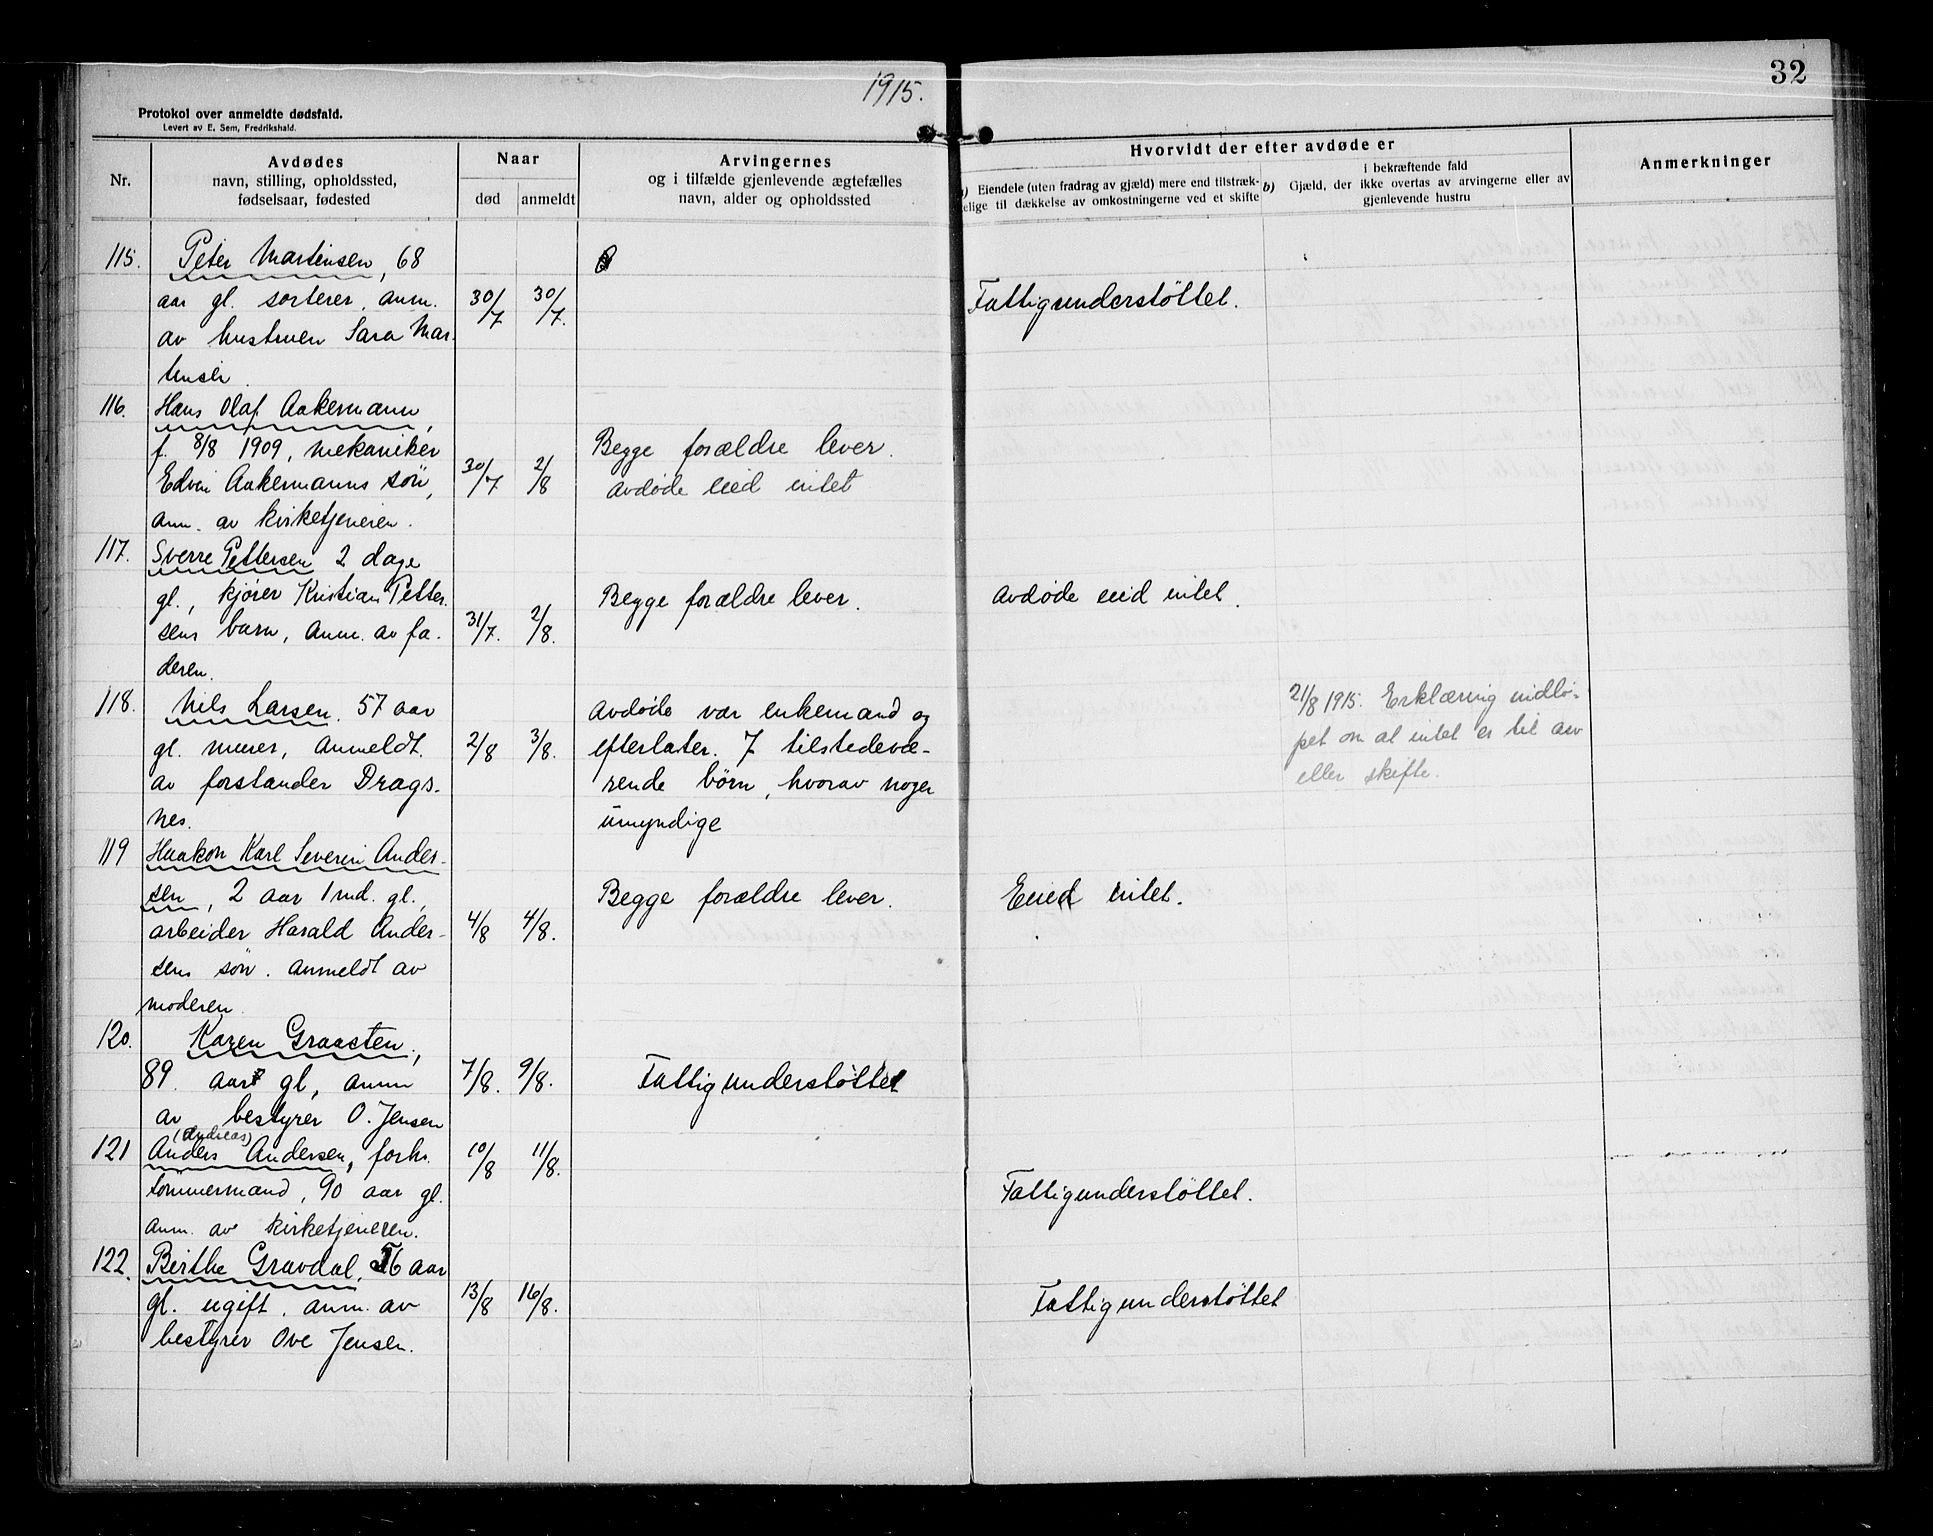 1915.
32
Protokol over anmeldte dødsfald.
Levert av E. Sem, Fredrikshald.
Nr.
Avdødes
navn, stilling, opholdssted,
fødselsaar, fødested
Naar
død
anmeldt
Arvingernes
og i tilfælde gjenlevende ægtefælles
navn, alder og opholdssted
Hvorvidt der efter avdøde er
a) Eiendele (uten fradrag av gjæld) mere end tilstræk-
kelige til dækkelse av omkostningerne ved et skifte
i bekræftende fald
b) Gjæld, der ikke overtas av arvingerne eller av
gjenlevende hustru
Anmerkninger
115. Peter Martinsen, 68
aar gl. sorterer, anm. 30/7 30/7. Fattigunderstøttet.
av hustruen Sara Mar-
tinsen
116. Hans Olaf Aakermann,
f. 8/8 1909, mekaniker Begge forældre lever.
Edvin Aakermanns søn, 30/7 2/8 Avdøde eied intet
anm. av kirketjeneren.
117. Sverre Pettersen 2 dage
gl., kjører Kristian Petter- Begge forældre lever. Avdøde eied intet.
sens barn, anm. av fa- 31/7. 2/8.
deren.
118. Nils Larsen. 57 aar Avdøde var enkemand og 21/8 1915. Erklæring indlø-
gl. murer, anmeldt 2/8 3/8. efterlater 7 tilstedevæ- pet om at intet er til arv
av forstander Drags- rende børn, hvorav noger eller skifte.
nes. umyndige
119 Haakon Karl Severin Ander-
sen, 2 aar 1 md. gl., Begge forældre lever. Eied intet.
arbeider Harald Ander- 4/8 4/8.
sens søn. Anmeldt av
moderen.
120. Karen Graasten,
89 aar gl, anm 7/8. 9/8. Fattigunderstøttet
av bestyrer O. Jensen
(Andreas)
121 Anders Andersen, forh. 10/8 11/8.
tømmermand, 90 aar gl. Fattigunderstøttet.
anm. av kirketjeneren.
122. Berthe Gravdal, 76 aar
gl. ugift. anm. av 13/8 16/8. Fattigunderstøttet
bestyrer Ove Jensen.